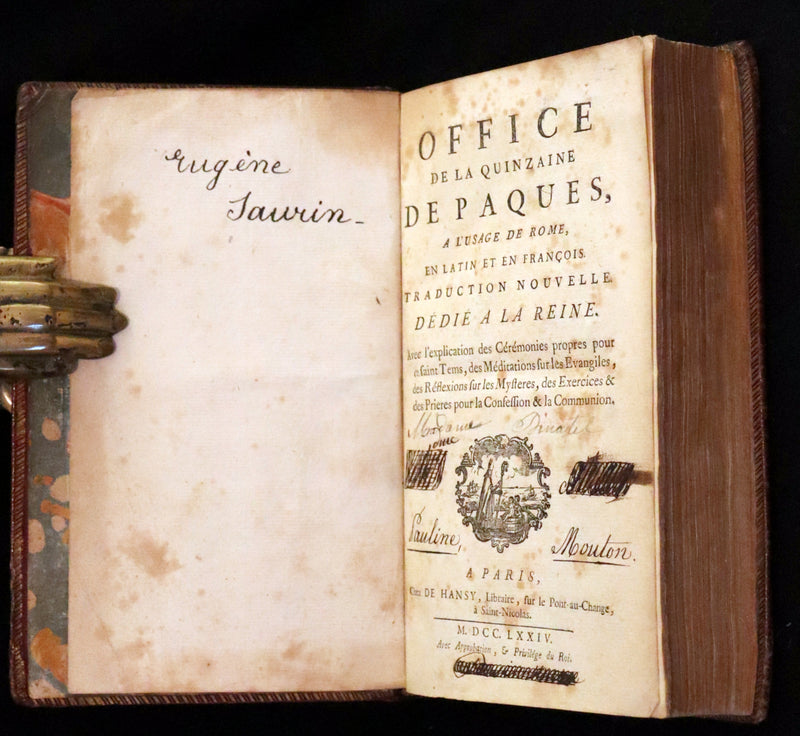 Eugène
Saurin-
OFFICE
DE LA QUINZAINE
DE PAQUES,
A L'USAGE DE ROME,
EN LATIN ET EN FRANÇOIS.
TRADUCTION NOUVELLE
DÉDIÉ A LA REINE.
Avec l'explication des Cérémonies propres pour
ce saint Tems, des Méditations sur les Evangiles,
des Réflexions sur les Mysteres, des Exercices &
des Prieres pour la Confession & la Communion.
Madame
Pauline, Mouton.
A PARIS,
Chez DE HANSY, Libraire, sur le Pont-au-Change,
à Saint-Nicolas.
M. DCC. LXXIV.
Avec Approbation, & Privilége du Roi.